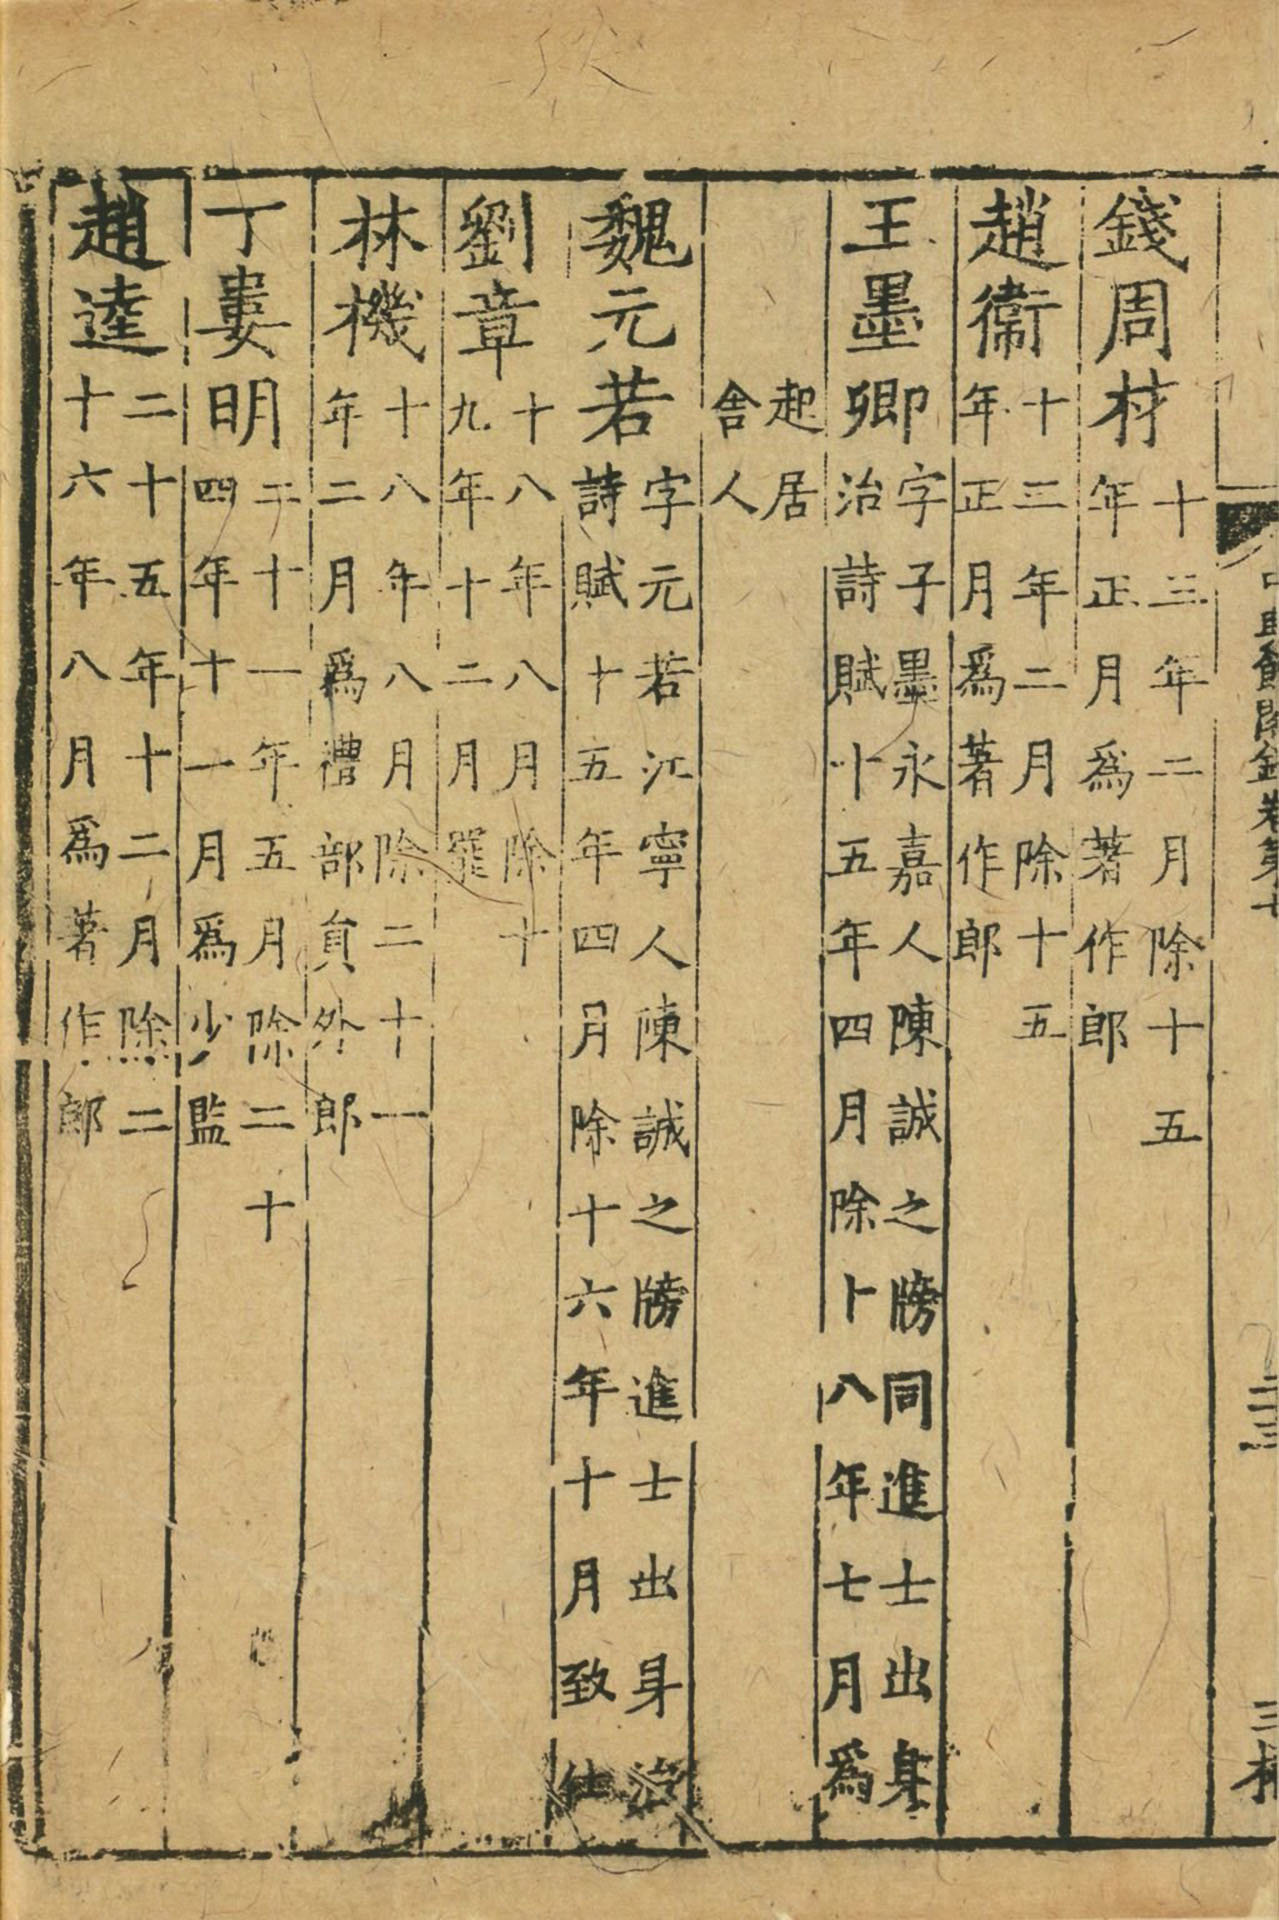 錢周材十三年二月除十五
年正月為著作郎
趙衞十三年二月除十五
年正月為著作郎
王墨卿字子墨永嘉人陳誠之牓同進士出身
治詩賦十五年四月除十八年七月為
起居
舍人
魏元若字元若江寧人陳誠之牓進士出身治
詩賦十五年四月除十六年十月致仕
劉章十八年八月除十
九年十二月罷
林機十八年八月除二十一
年二月為禮部員外郎
丁婁明二十一年五月除二十
四年十一月為少監
趙逵二十五年十二月除二
十六年八月為著作郎